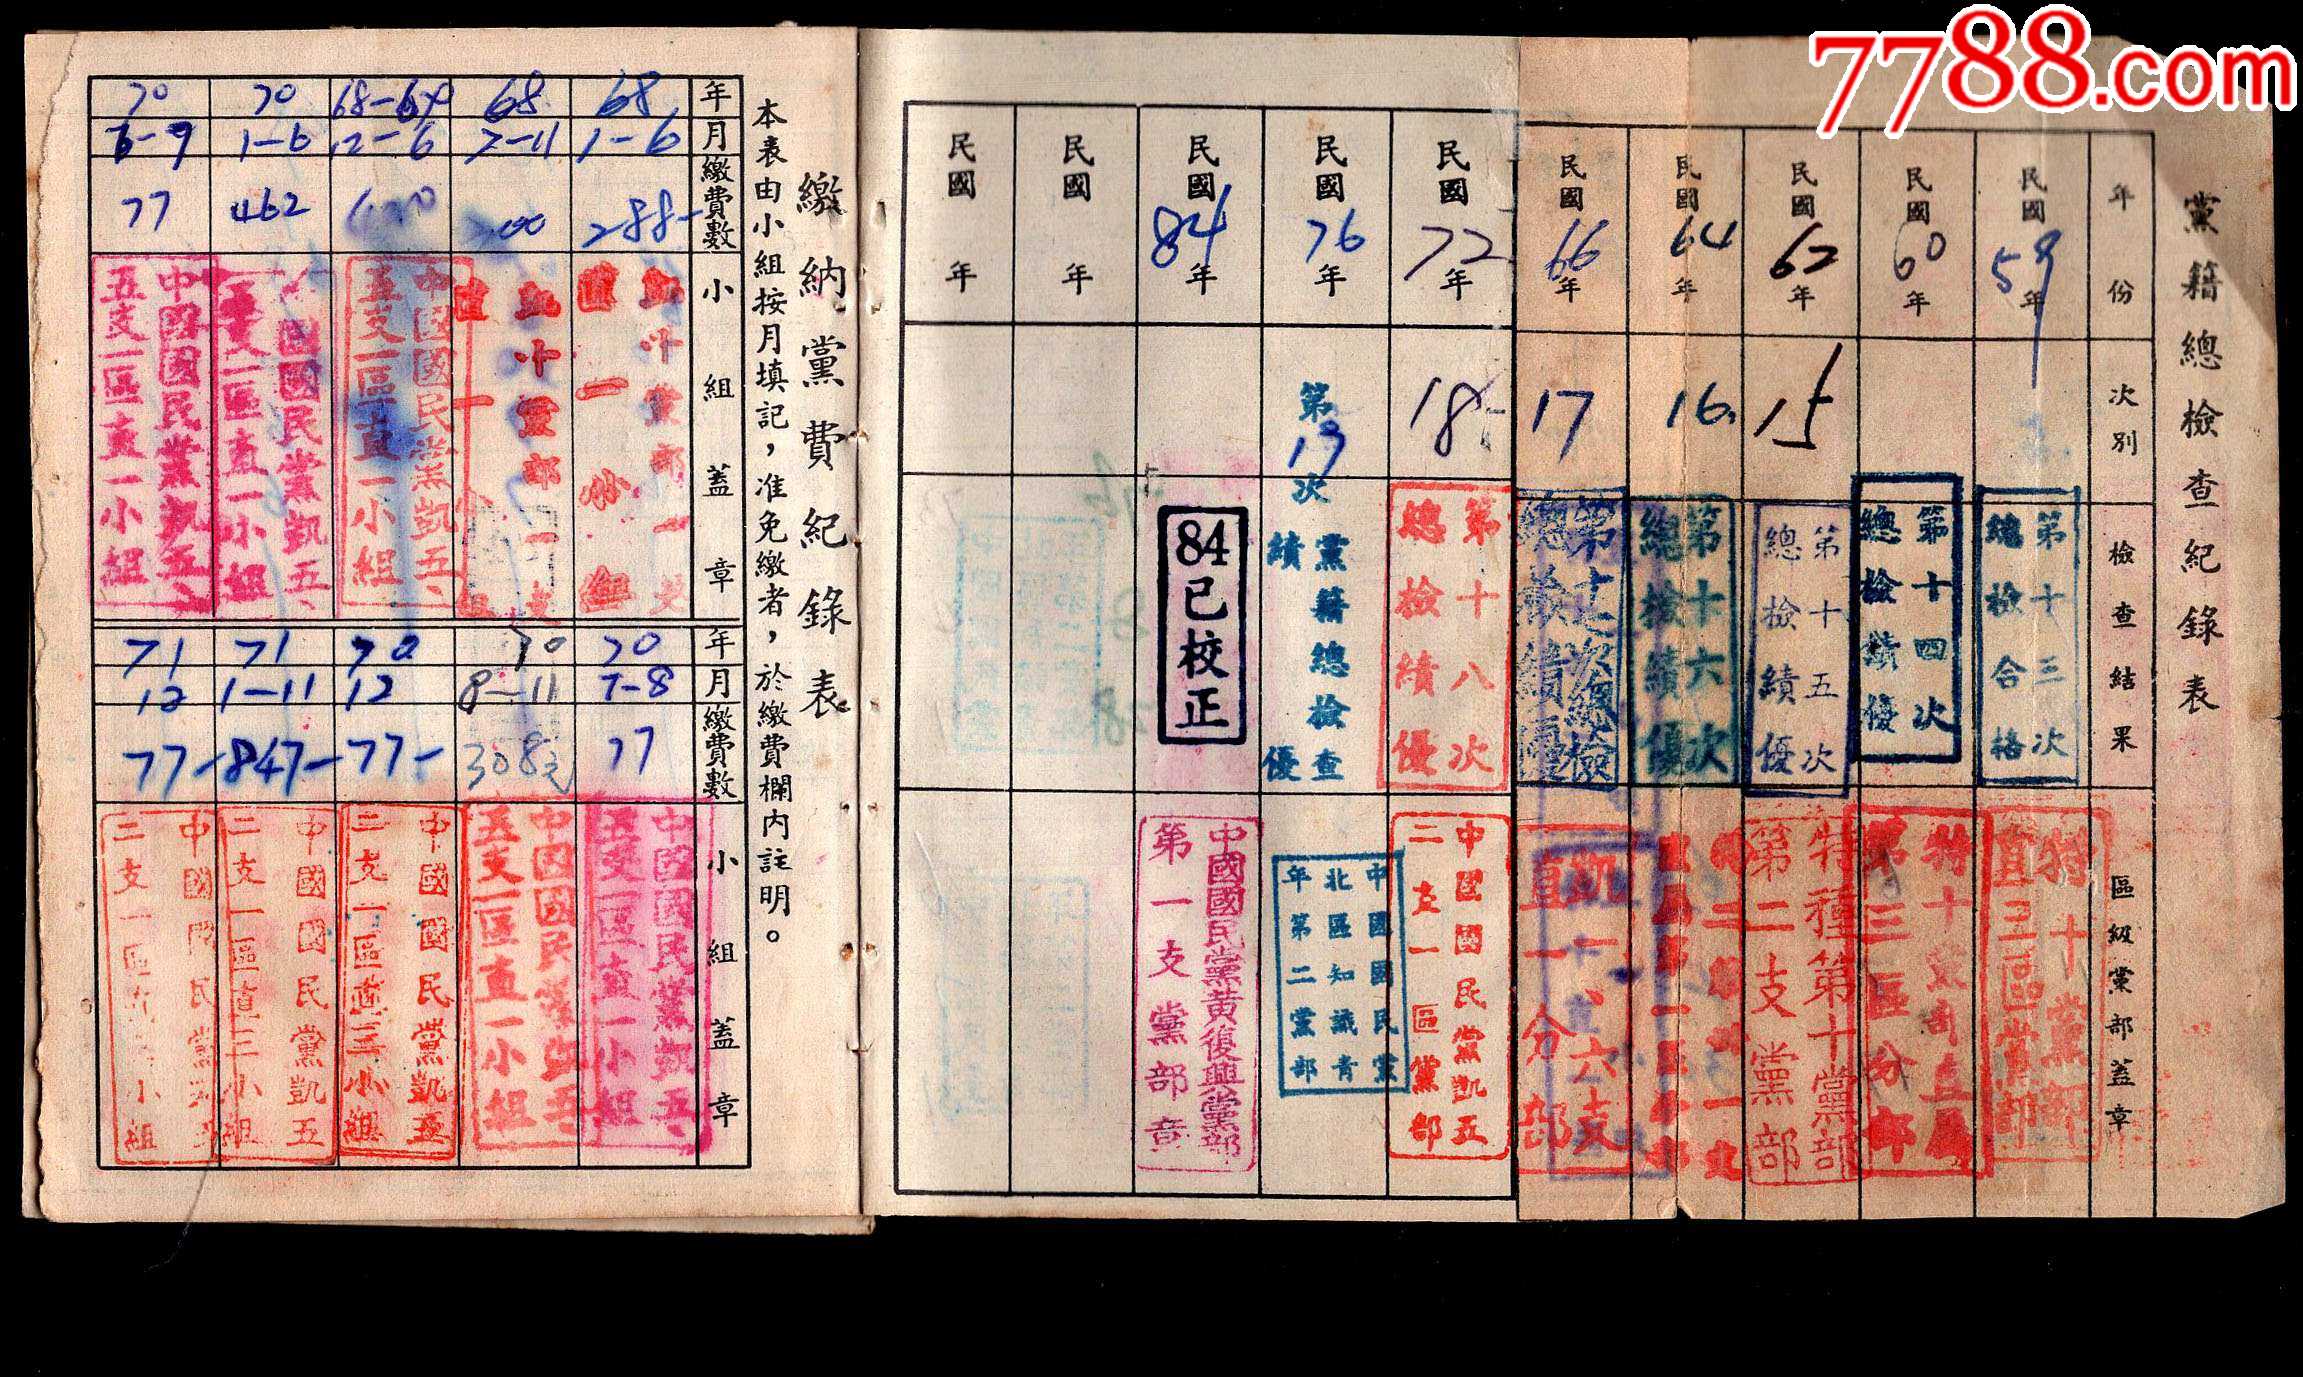 7788.com
黨籍總檢查紀錄表
年份
次別
檢查結果
區級黨部蓋章
民國59年
第十三次
總檢合格
特十黨部
直三區黨部
民國60年
第十四次
總檢績優
第三區分部
民國62年
15
第十五次
總檢績優
特種第十黨部
第二支黨部
民國64年
16
第十六次
總檢績優
民國66年
17
直一分部
民國72年
18
第十八次
總檢績優
中國國民黨凱五
二支一區黨部
民國76年
第19次
黨籍總檢查
績優
中國國民黨
北區知識青
年第二黨部
民國84年
84已校正
中國國民黨黃復興黨部
第一支黨部章
民國 年
民國 年
繳納黨費紀錄表
本表由小組按月填記，准免繳者，於繳費欄內註明。
年
月
繳費數
小組蓋章
68
1-6
288-
68
7-11
200
68-69
12-6
中國國民黨凱五、
五支一區直一小組
70
1-6
462
國國民黨凱五、
支一區直一小組
70
77
中國國民黨凱五、
五支一區直一小組
年
月
繳費數
小組蓋章
70
7-8
77
中國國民黨凱五、
五支一區直一小組
70
8-11
308元
中國國民黨凱五
五支一區直一小組
70
12
77-
中國國民黨凱五
二支一區直三小組
71
1-11
847-
中國國民黨凱五
二支一區直三小組
71
12
77-
中國國民黨凱五